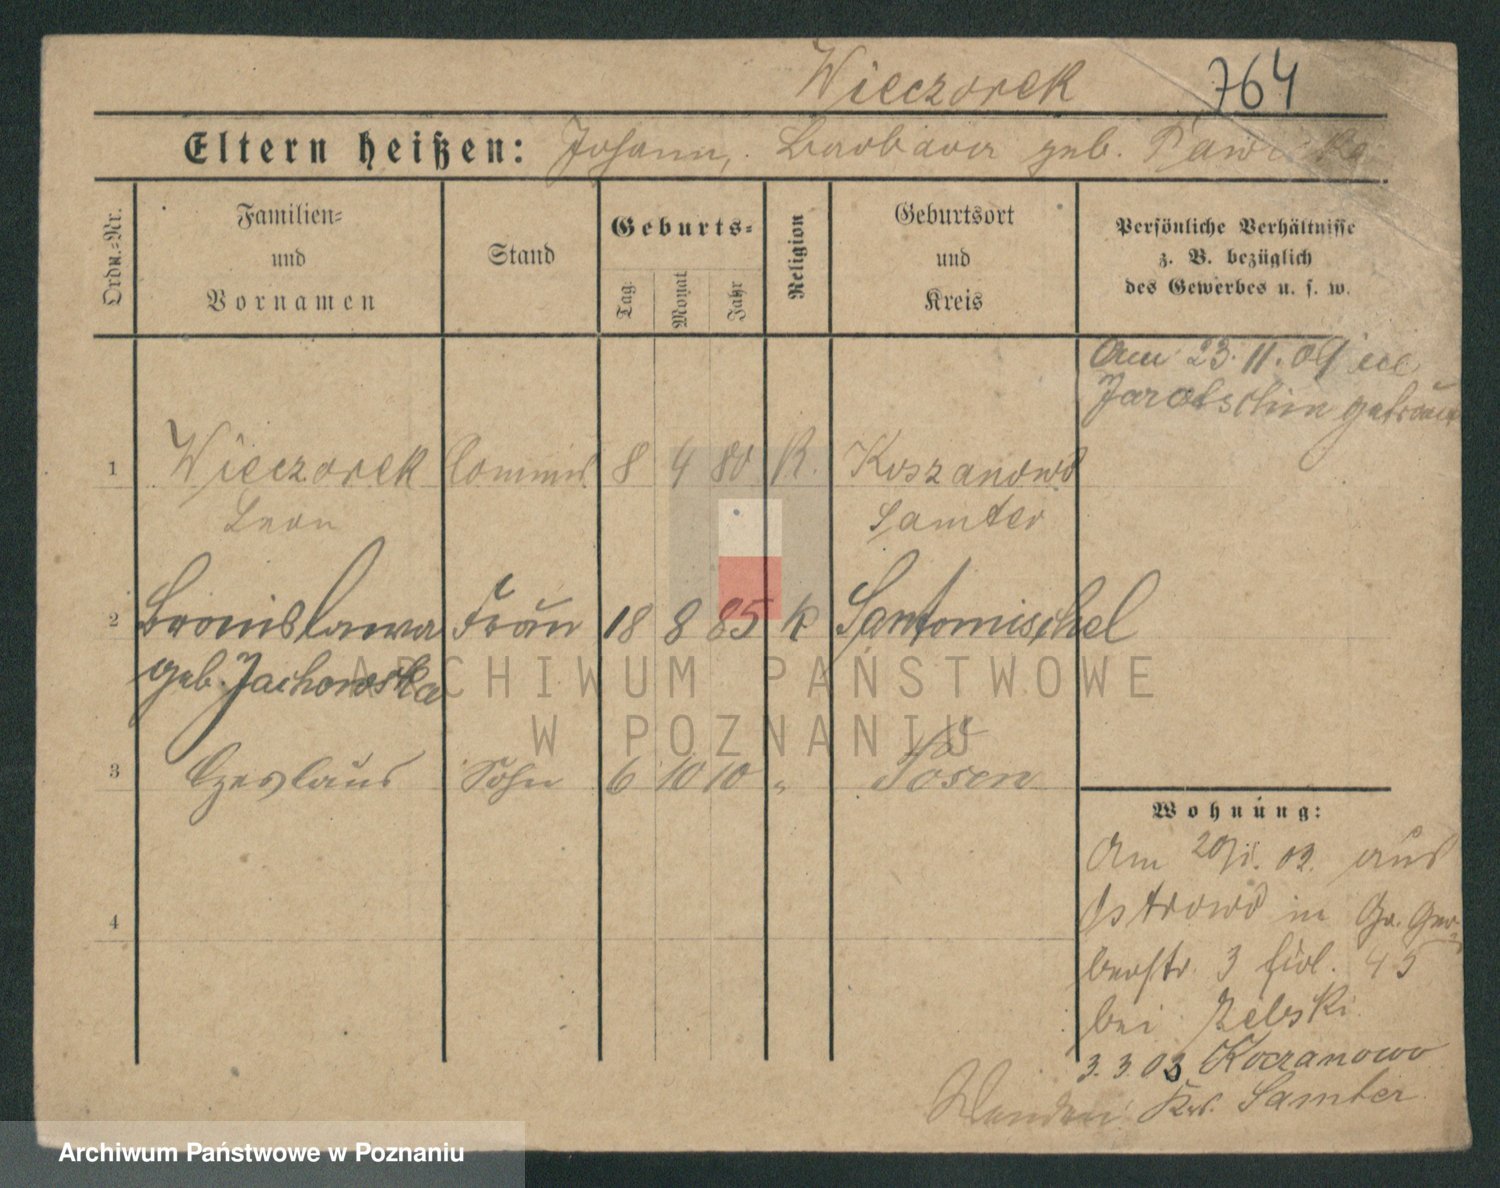 Wieczorek 764
Eltern heißen: Johann, Barbara geb.
Ordn.-Nr.
Familien-
und
Vornamen
Stand
Geburts-
Tag.
Monat
Jahr
Religion
Geburtsort
und
Kreis
Persönliche Verhältnisse
z. B. bezüglich
des Gewerbes u. s. w.
Am 23.11.09 in
Jarotschin getraut
1 Wieczorek Commis 8 4 80 K. Koszanowo
Leon Samter
2 Bronislawa Frau 18 8 85 K Santomischel
geb. Jachowska
3 Czeslaus Sohn 6 10 10 " Posen
4
Wohnung:
Am 20/1. 02. aus
Ostrowo in Gr. Ger-
berstr. 3 45
bei Zelski
3.3.03 Koczanowo
Krs. Samter
ARCHIWUM PAŃSTWOWE
W POZNANIU
Archiwum Państwowe w Poznaniu